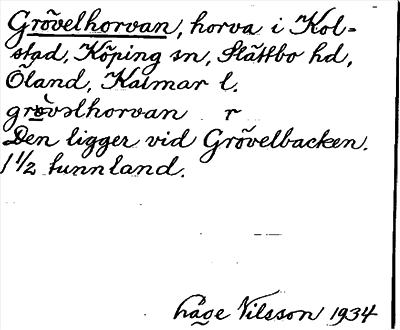 Grövelhorvan, horva i Kol-
stad, Köping sn, Slättbo hd,
Öland, Kalmar l.
gròvəlhorvan r
Den ligger vid Grövelbacken.
1 1/2 tunnland.
Håge Nilsson 1934